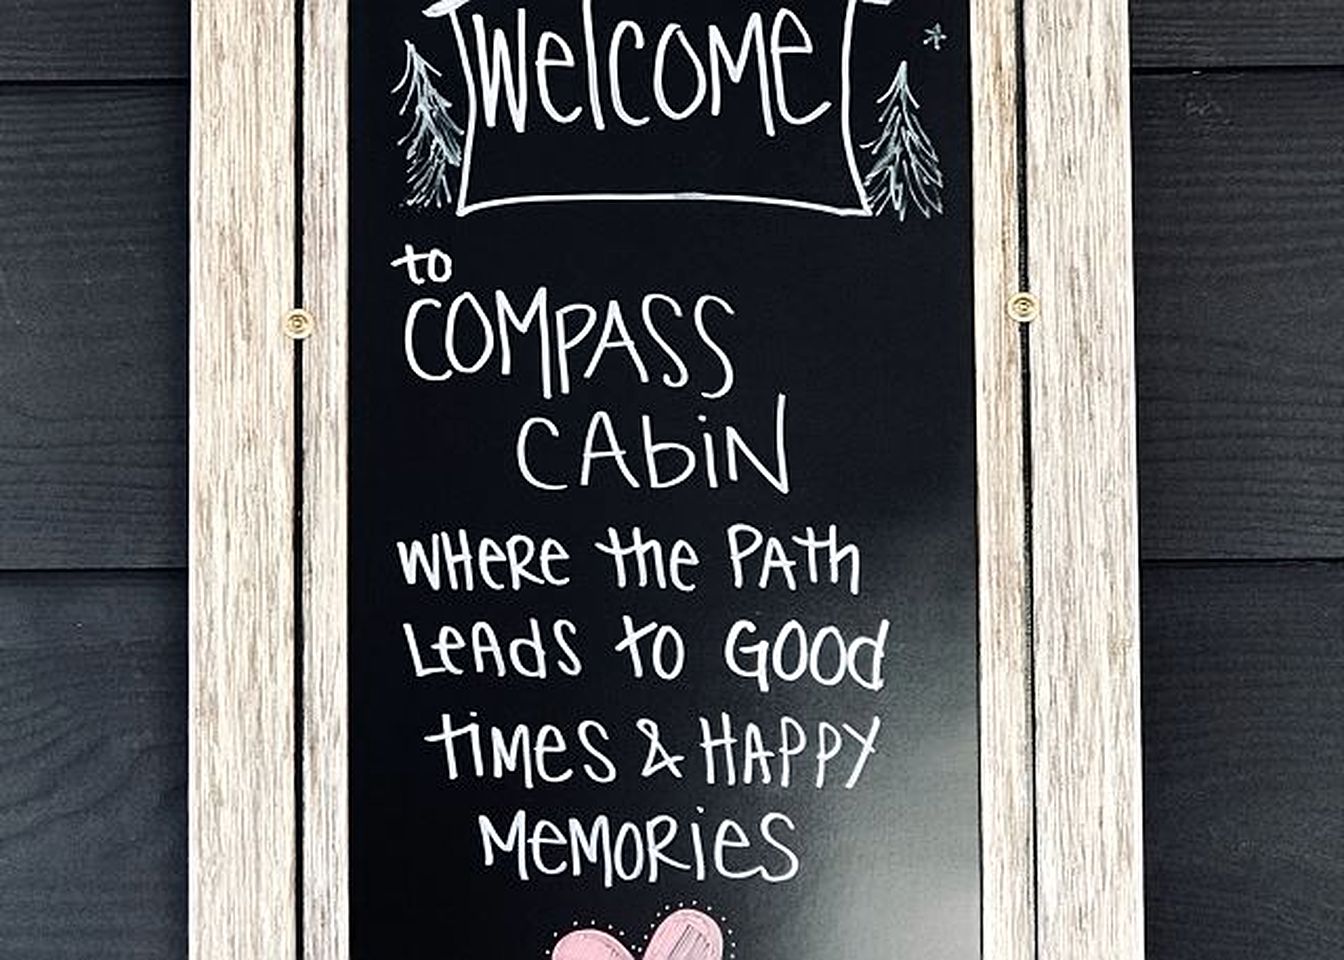 Welcome
to
COMPASS
CAbiN
WHeRe the PAth
LeAds to GOOd
tiMes & HAPPY
MeMORies